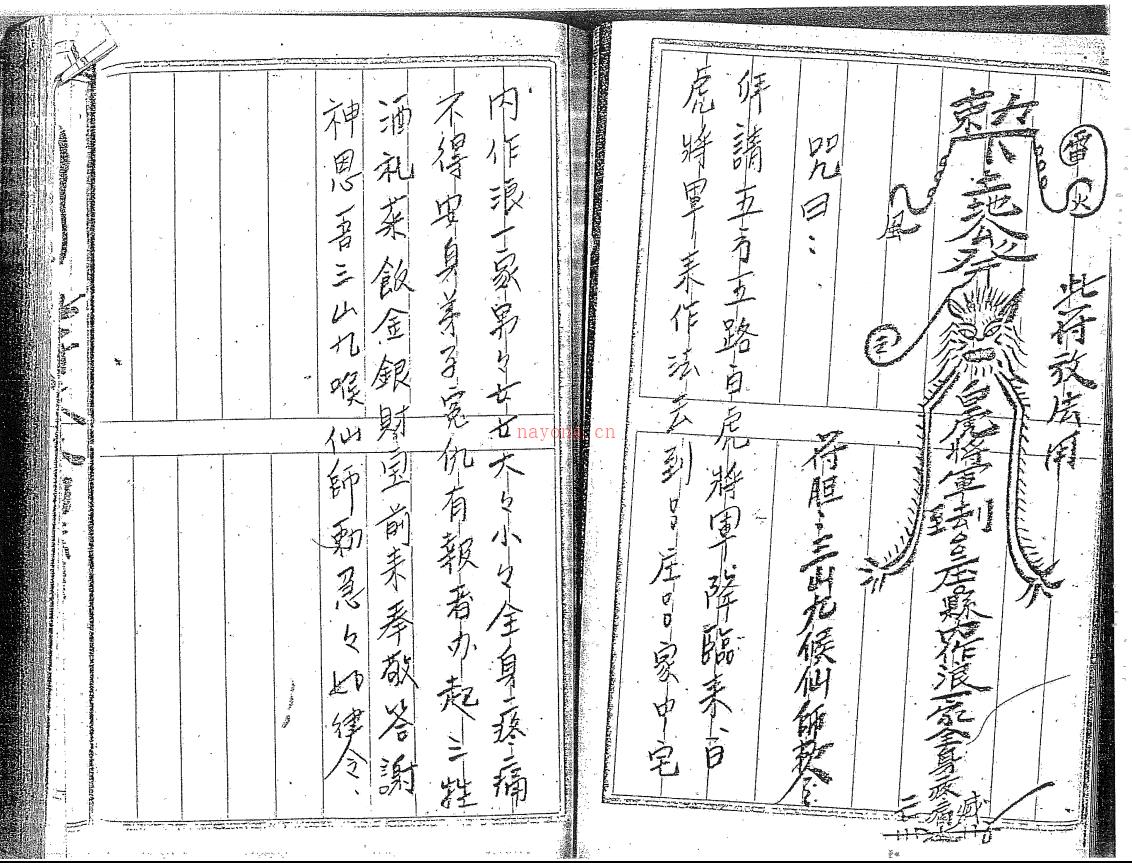 此符放法用
雷火
風
土地公
白虎將軍去到吕庄吕縣内作浪一家全身疼痛
符胆：三山九候仙師敕令
咒曰：
拜請五方五路白虎將軍降臨來白
虎將軍來作法去到吕庄吕家中宅
内作浪一家男々女女大々小々全身疼痛
不得安身弟子冤仇有報看办起三牲
酒礼菜飯金銀財宝前来奉敬答謝
神恩吾三山九喉仙師勅急々如律令
nayona.cn